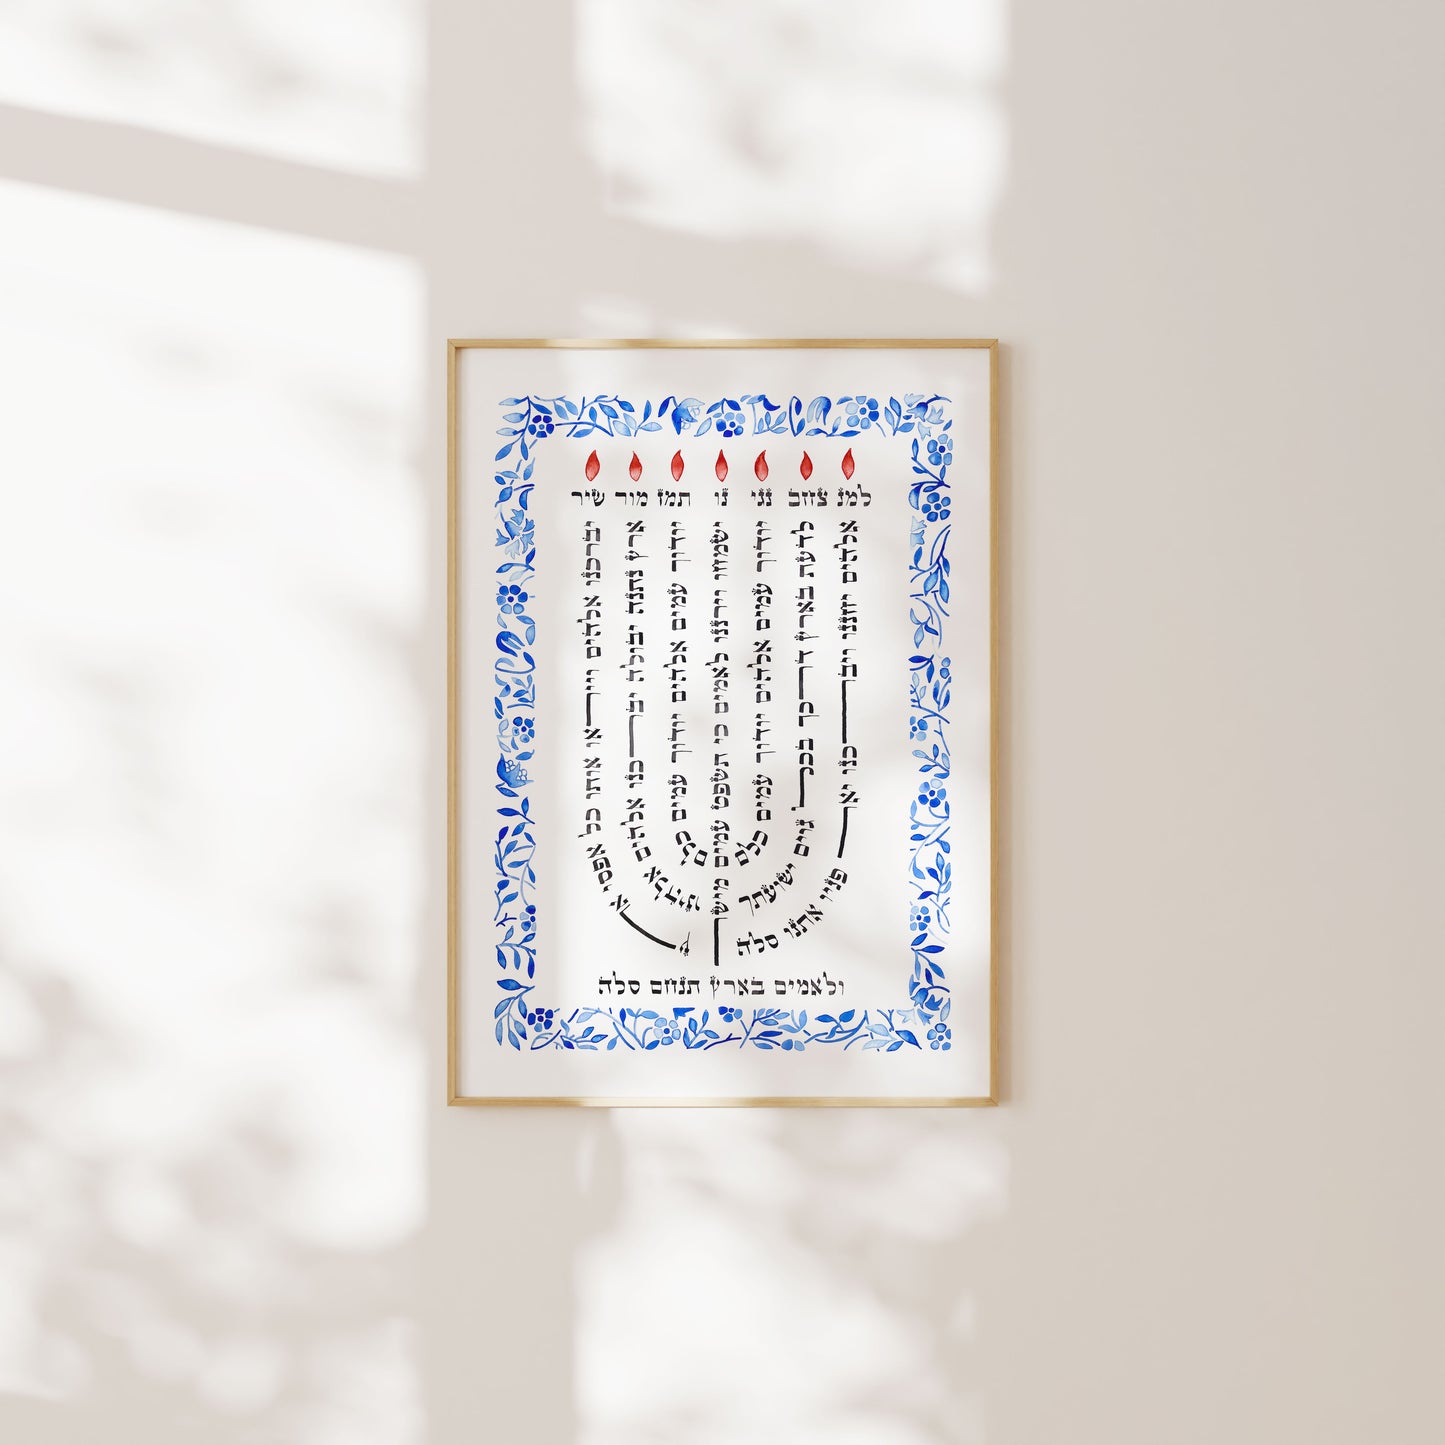 למנ צחב נגי נו תמז מור שיר
אלהים יחננו ויברכנו יאר פניו אתנו סלה
לדעת בארץ דרכך בכל גוים ישועתך
יודוך עמים אלהים יודוך עמים כלם
ישמחו וירננו לאמים כי תשפט עמים מישר
יודוך עמים אלהים יודוך עמים כלם
ארץ נתנה יבולה יברכנו אלהים אלהינו
יברכנו אלהים וייראו אותו כל אפסי ארץ
ולאמים בארץ תנחם סלה